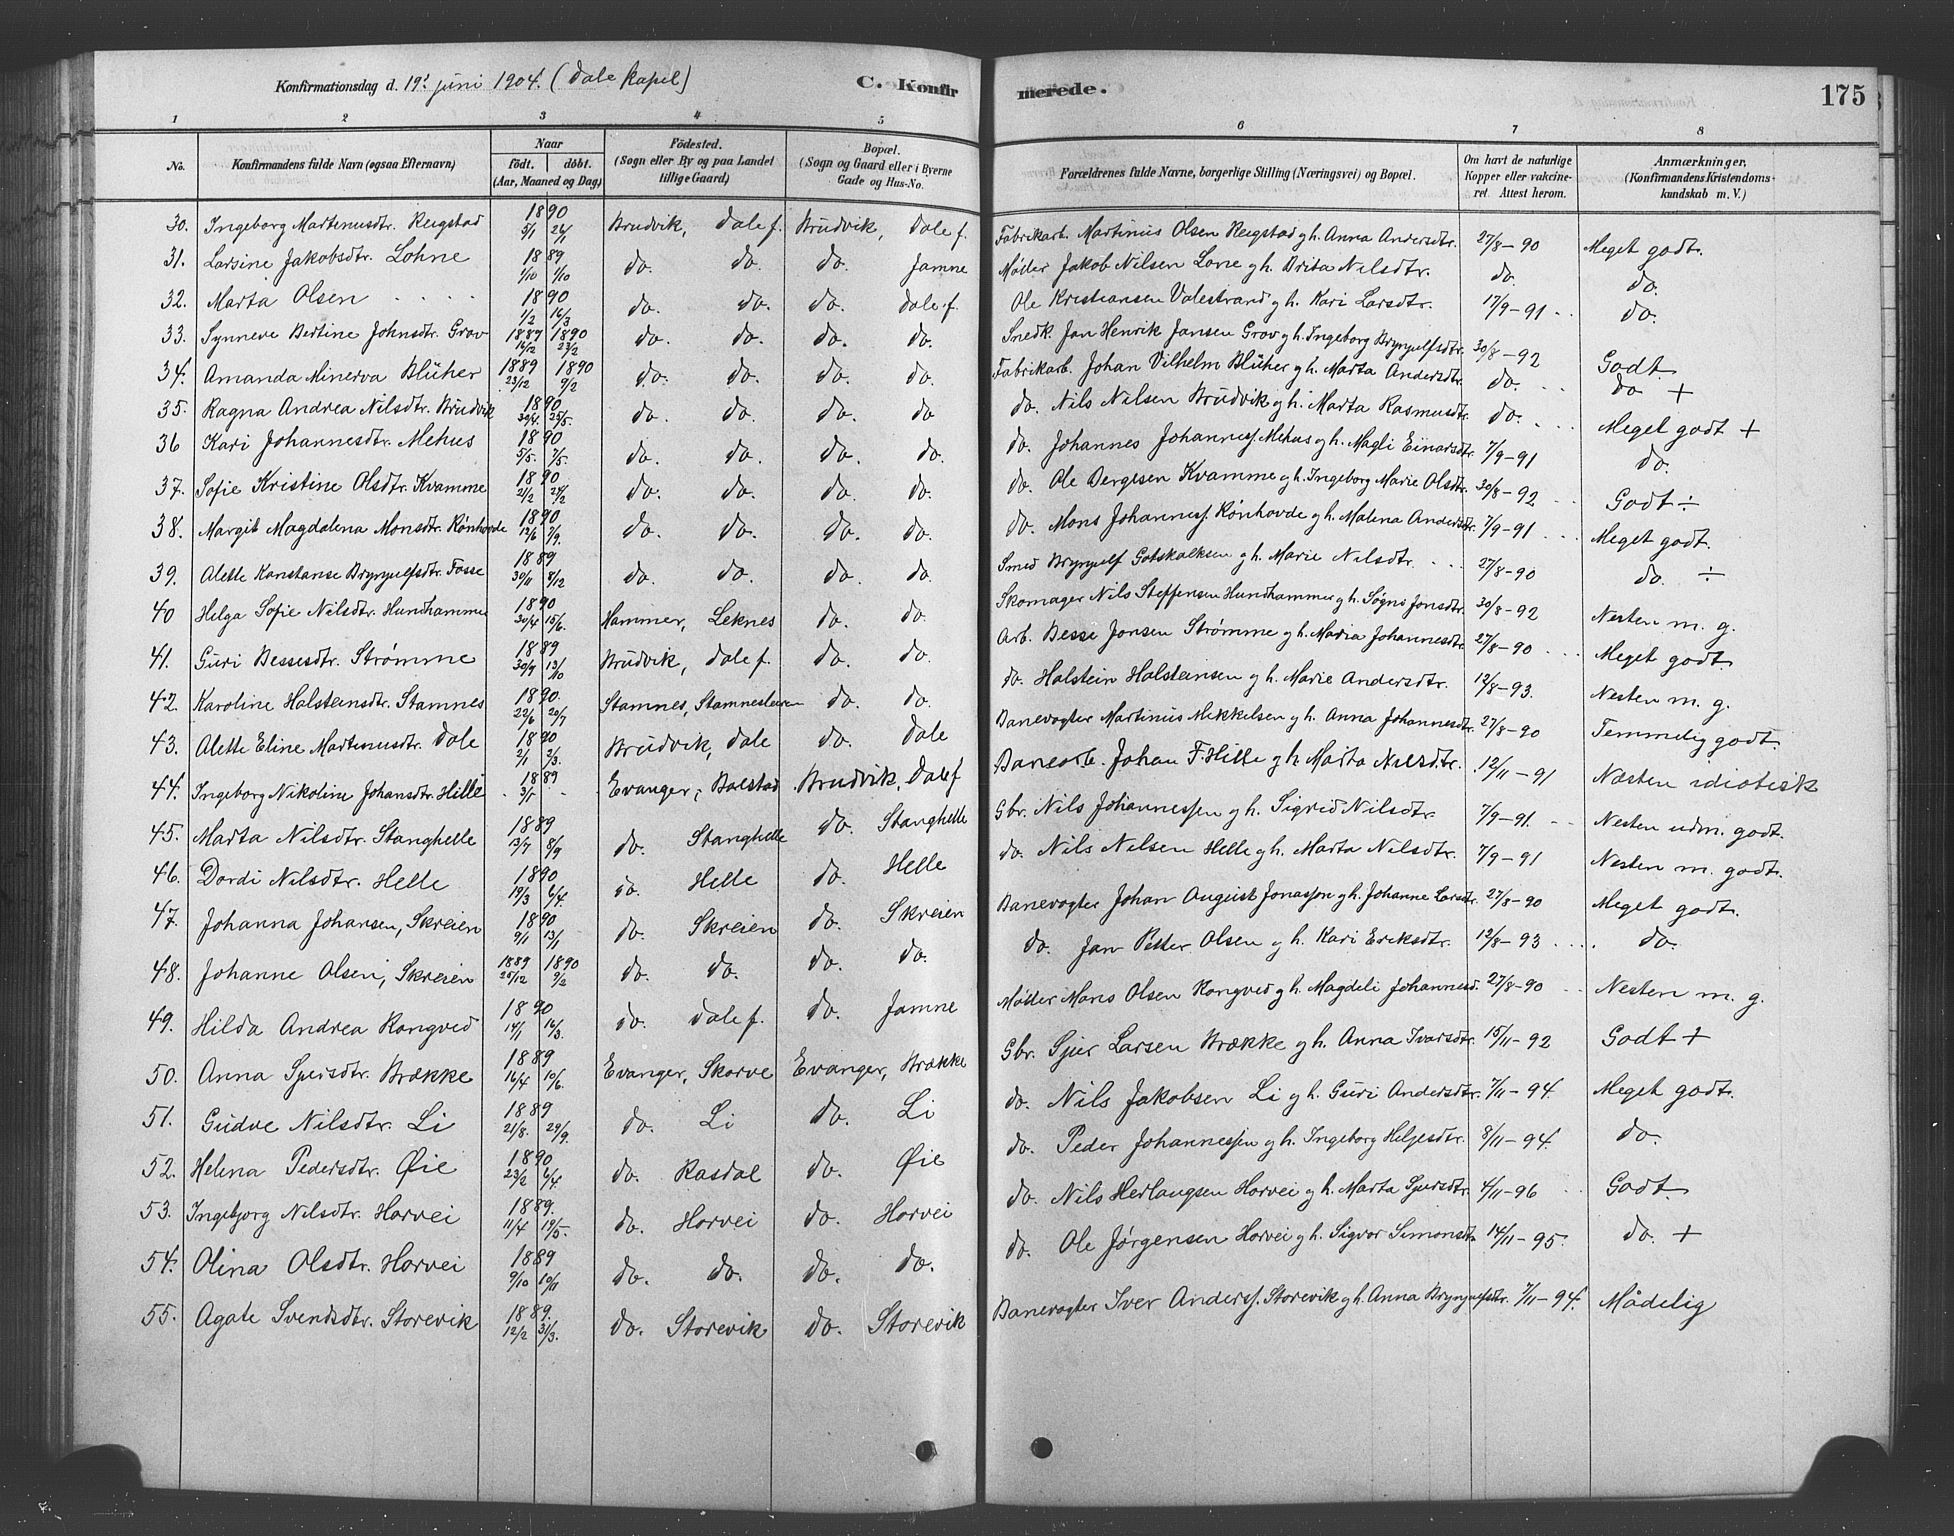 Konfirmationsdag d. 19! juni 1904. (Dale kapel)
C. Konfirmerede.
175
1 2 3 4 5 6 7 8
No. Konfirmandens fulde Navn (ogsaa Efternavn) Naar födt. döbt. (Aar, Maaned og Dag) Födested. (Sogn eller By og paa Landet tillige Gaard.) Bopæl. (Sogn og Gaard eller i Byerne Gade og Hus-No. Forældrenes fulde Navne, borgerlige Stilling (Næringsvei) og Bopæl. Om havt de naturlige Kopper eller vakcineret. Attest herom. Anmærkninger, (Konfirmandens Kristendomskundskab m. V.)
30. Ingeborg Martinusdtr. Rugstad 1890 5/1 26/1 Brudvik, Dale f. Brudvik, Dale f. Fabrikarb. Martinus Olsen Rugstad y h. Anna Andersdtr. 27/8-90 Meget godt.
31. Larsine Jakobsdtr. Lohne 1889 1/10 1/10 do. do. do. Jamne Møller Jakob Nilsen Lone y h. Brita Nilsdtr. do. do.
32. Marta Olsen 1890 1/2 16/3 do. do. do. Dale f. Ole Kristiansen Valestrand y h. Kari Larsdtr. 17/9-91 do.
33. Synneve Bertine Johnsdtr. Grov 1889 16/12 1890 23/2 do. do. do. do. Snedk. Jan Henrik Jansen Grov y h. Ingeborg Brynjulfsdtr. 30/8-92 Godt.
34. Amanda Minerva Blüher 1889 23/12 1890 9/2 do. do. do. do. Fabrikarb. Johan Vilhelm Blüher y h. Marta Andersdtr. do. do +
35. Ragna Andrea Nilsdtr. Brudvik 1890 30/4. 25/5. do. do. do. do do. Nils Nilsen Brudvik y h. Marta Rasmusdtr. do. Meget godt +
36 Kari Johannesdtr. Mehus 1890 5/5. 7/5. do. do. do. do. do. Johannes Johanness. Mehus y h. Magli Einarsdtr. 7/9-91 do.
37. Sofie Kristine Olsdtr. Kvamme 1890 2/2 do. do. do. do. do. Ole Bergesen Kvamme y h. Ingeborg Marie Olsdtr. 30/8-92 Godt ÷
38. Margit Magdalena Monsdtr. Rønhovde 1890 12/6 7/9. do. do. do. do. do. Mons Johanness. Rønhovde y h. Malena Andersdtr. 7/9-91 Meget godt.
39. Alette Konstanse Brynjulfsdtr. Fosse 1889 30/11 8/12 do. do. do. do. Smed Brynjulf Gotskalksen y h. Marie Nilsdtr. 27/8-90 do. ÷
40 Helga Sofie Nilsdtr. Hundhammer 1890 30/4 15/6. Hammer, Leknes do. do. Skomager Nils Steffensen Hundhammer y h. Søgni Jonsdtr. 30/8-92 Nesten m. g.
41. Guri Bessesdtr. Strømme 1889 30/9 13/10 Brudvik, Dale f. do. do. Arb. Besse Jonsen Strømme y h. Maria Johannesdtr. 27/8-90 Meget godt.
42. Karoline Halsteinsdtr. Stamnes 1890. 22/6 20/7 Stamnes, Stamnesleiren do. do. do. Halstein Halsteinsen y h. Marie Andersdtr. 12/8-93. Nesten m. g.
43. Alette Eline Martinusdtr. Dale 1890 2/1 2/3. Brudvik, Dale do. Dale Banevogter Martinus Mikkelsen y h. Anna Johannesdtr. 27/8-90 Temmelig godt
44. Ingeborg Nikoline Johansdtr. Hille 1889 3/5 Evanger, Bolstad Brudvik, Dale f Banearb. Johan F. Hille y h. Marta Nilsdtr. 12/11-91 Næsten idiotisk
45. Marta Nilsdtr. Stanghelle 1889 13/7 8/9 do. Stanghelle do. Stanghelle Gbr. Nils Johannessen y h. Sigrid Nilsdtr. 7/9-91. Nesten udm. godt.
46. Dordi Nilsdtr. Helle 1890 19/3 6/4. do. Helle do. Helle do. Nils Nilsen Helle y h. Marta Nilsdtr. 7/9-91 Nesten m. godt.
47. Johanna Johansen, Skreien 1890 9/1 13/1 do. Skreien do. Skreien Banevogter Johan August Jonasson y h. Johanne Larsdtr. 27/8-90 Meget godt.
48. Johanne Olsen, Skreien 1889 25/12 1890 9/2 do. do. do. do. do. Jan Petter Olsen y h. Kari Eriksdtr. 12/8-93 do.
49. Hilda Andrea Rongved 1890 14/1 16/3. do. Dale f. do. Jamne Møller Mons Olsen Rongved y h. Magdeli Johannesd. 27/8-90 Nesten m. g.
50. Anna Sjursdtr. Brække 1889 16/4 10/6. Evanger, Skorve Evanger, Brække Gbr. Sjur Larsen Brække y h. Anna Ivarsdtr. 15/11-92 Godt +
51. Gudve Nilsdtr. Li 1889 21/8. 29/9. do. Li do. Li do. Nils Jakobsen Li y h. Guri Andersdtr. 7/11-94. Meget godt.
52. Helena Pedersdtr. Øie 1890 23/2 6/4. do. Rasdal do. Øie do. Peder Johannessen y h. Ingeborg Heljesdtr. 8/11-94. do.
53. Ingebjorg Nilsdtr. Horvei 1889. 11/4 19/5. do. Horvei do. Horvei do. Nils Herlaugsen Horvei y h. Marta Sjursdtr. 4/11-96 Godt.
54. Olina Olsdtr. Horvei 1889 9/10 10/11 do. do. do. do. do. Ole Jørgensen Horvei y h. Sigvor Simonsdtr. 14/11-95. do. +
55. Agate Svendsdtr. Storevik 1889. 12/2 31/3. do. Storevik do. Storevik Banevogter Iver Anderss. Storevik y h. Anna Brynjulfsdtr. 7/11-94. Mådelig